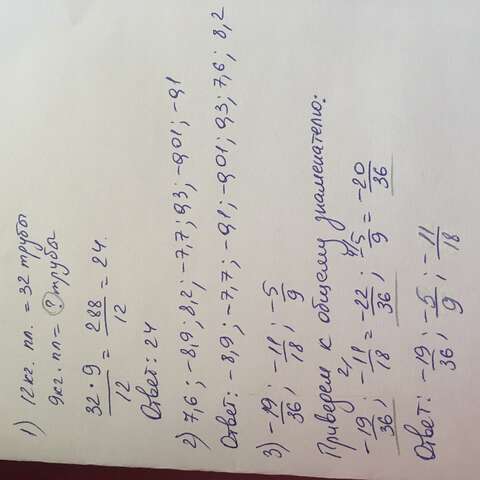 1) 12кг. пл. = 32 трубы
9кг. пл = ? трубы
32 · 9 / 12 = 288 / 12 = 24.
Ответ: 24
2) 7,6; -8,9; 8,2; -7,7; 0,3; -0,01; -0,1
Ответ: -8,9; -7,7; -0,1; -0,01; 0,3; 7,6; 8,2
3) -19/36; -11/18; -5/9
Приведем к общему знаменателю:
-19/36; 2, -11/18 = -22/36; 4, -5/9 = -20/36
Ответ: -19/36; -5/9; -11/18